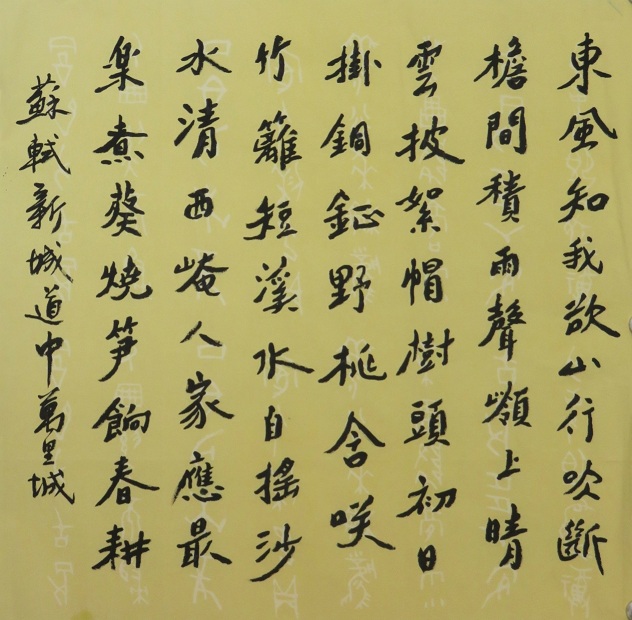 東風知我欲山行吹斷
檐間積雨聲嶺上晴
雲披絮帽樹頭初日
掛銅鉦野桃含咲
竹籬短溪水自搖沙
水清西崦人家應最
楽煮葵燒笋餉春耕
蘇軾新城道中萬里城